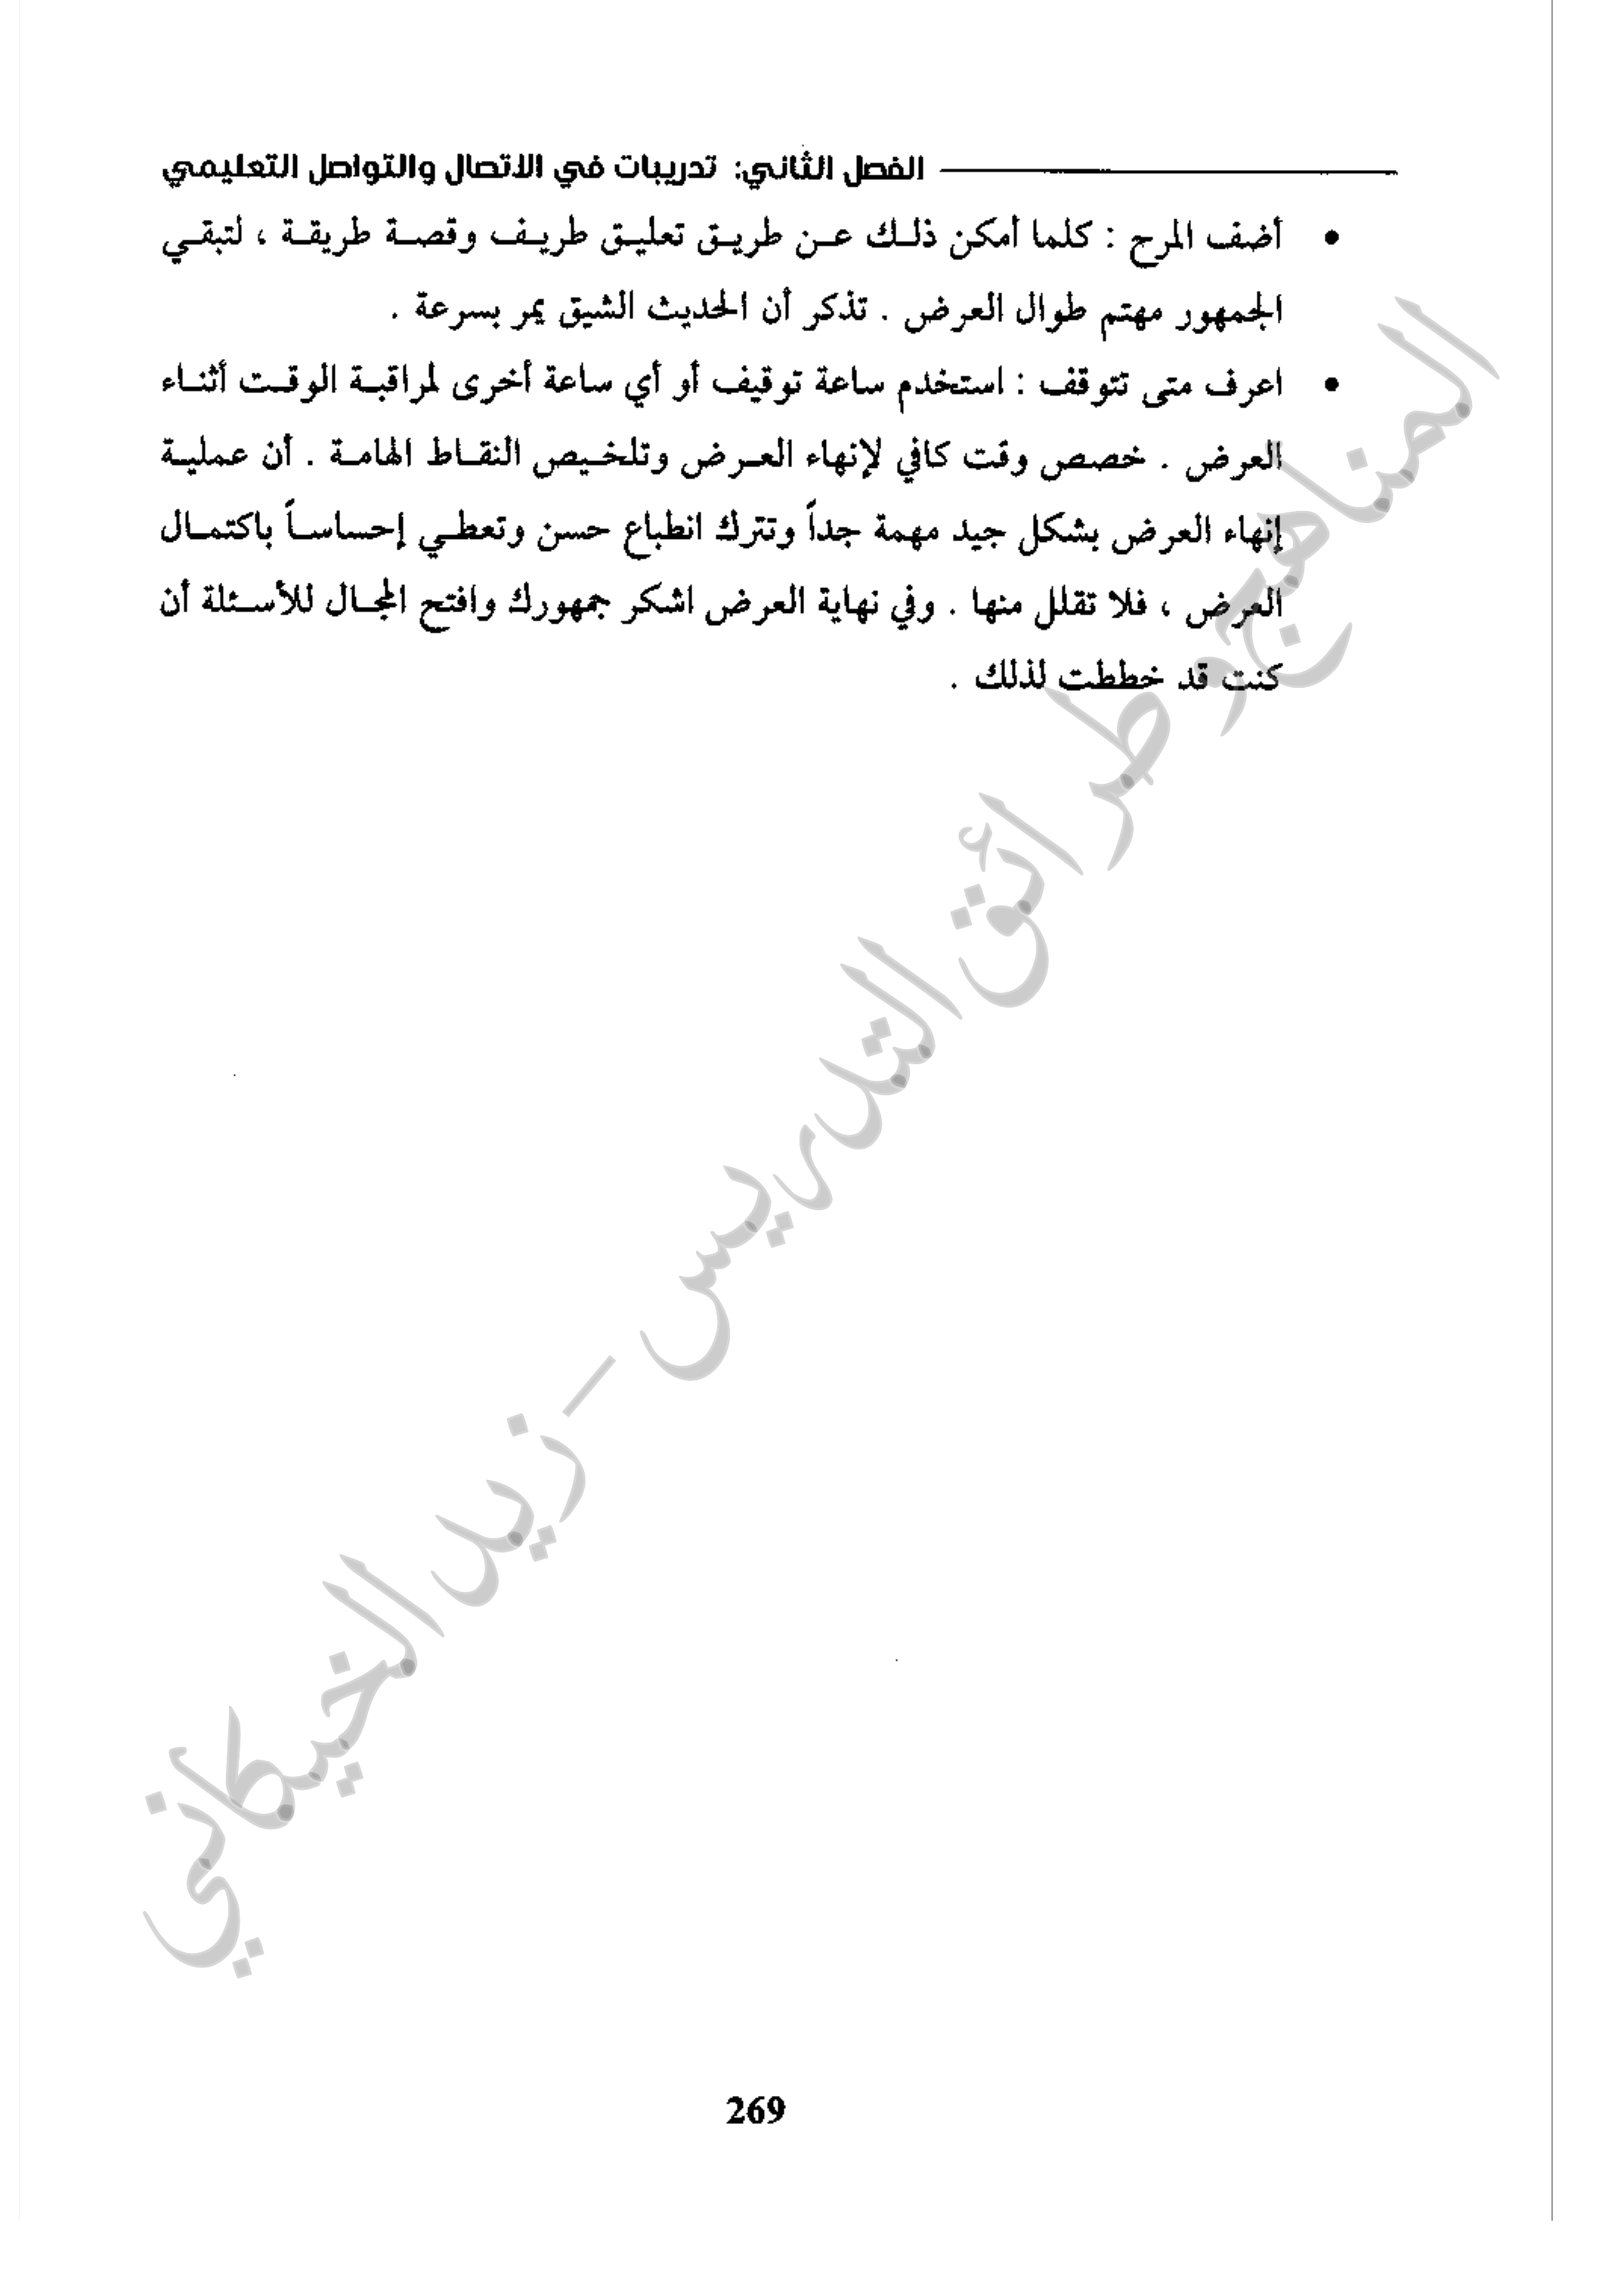 الفصل الثاني: تدريبات في الاتصال والتواصل التعليمي
• أضف المرح : كلما أمكن ذلك عن طريق تعليق طريف وقصة طريقة ، لتبقي
الجمهور مهتم طوال العرض . تذكر أن الحديث الشيق يمر بسرعة .
• اعرف متى تتوقف : استخدم ساعة توقيف أو أي ساعة أخرى لمراقبة الوقت أثناء
العرض . خصص وقت كافي لإنهاء العرض وتلخيص النقاط الهامة . أن عملية
إنهاء العرض بشكل جيد مهمة جداً وتترك انطباع حسن وتعطي إحساساً باكتمال
العرض ، فلا تقلل منها . وفي نهاية العرض اشكر جمهورك وافتح المجال للأسئلة أن
كنت قد خططت لذلك .
المناهج وطرائق التدريس - زيد الخيكاني
269